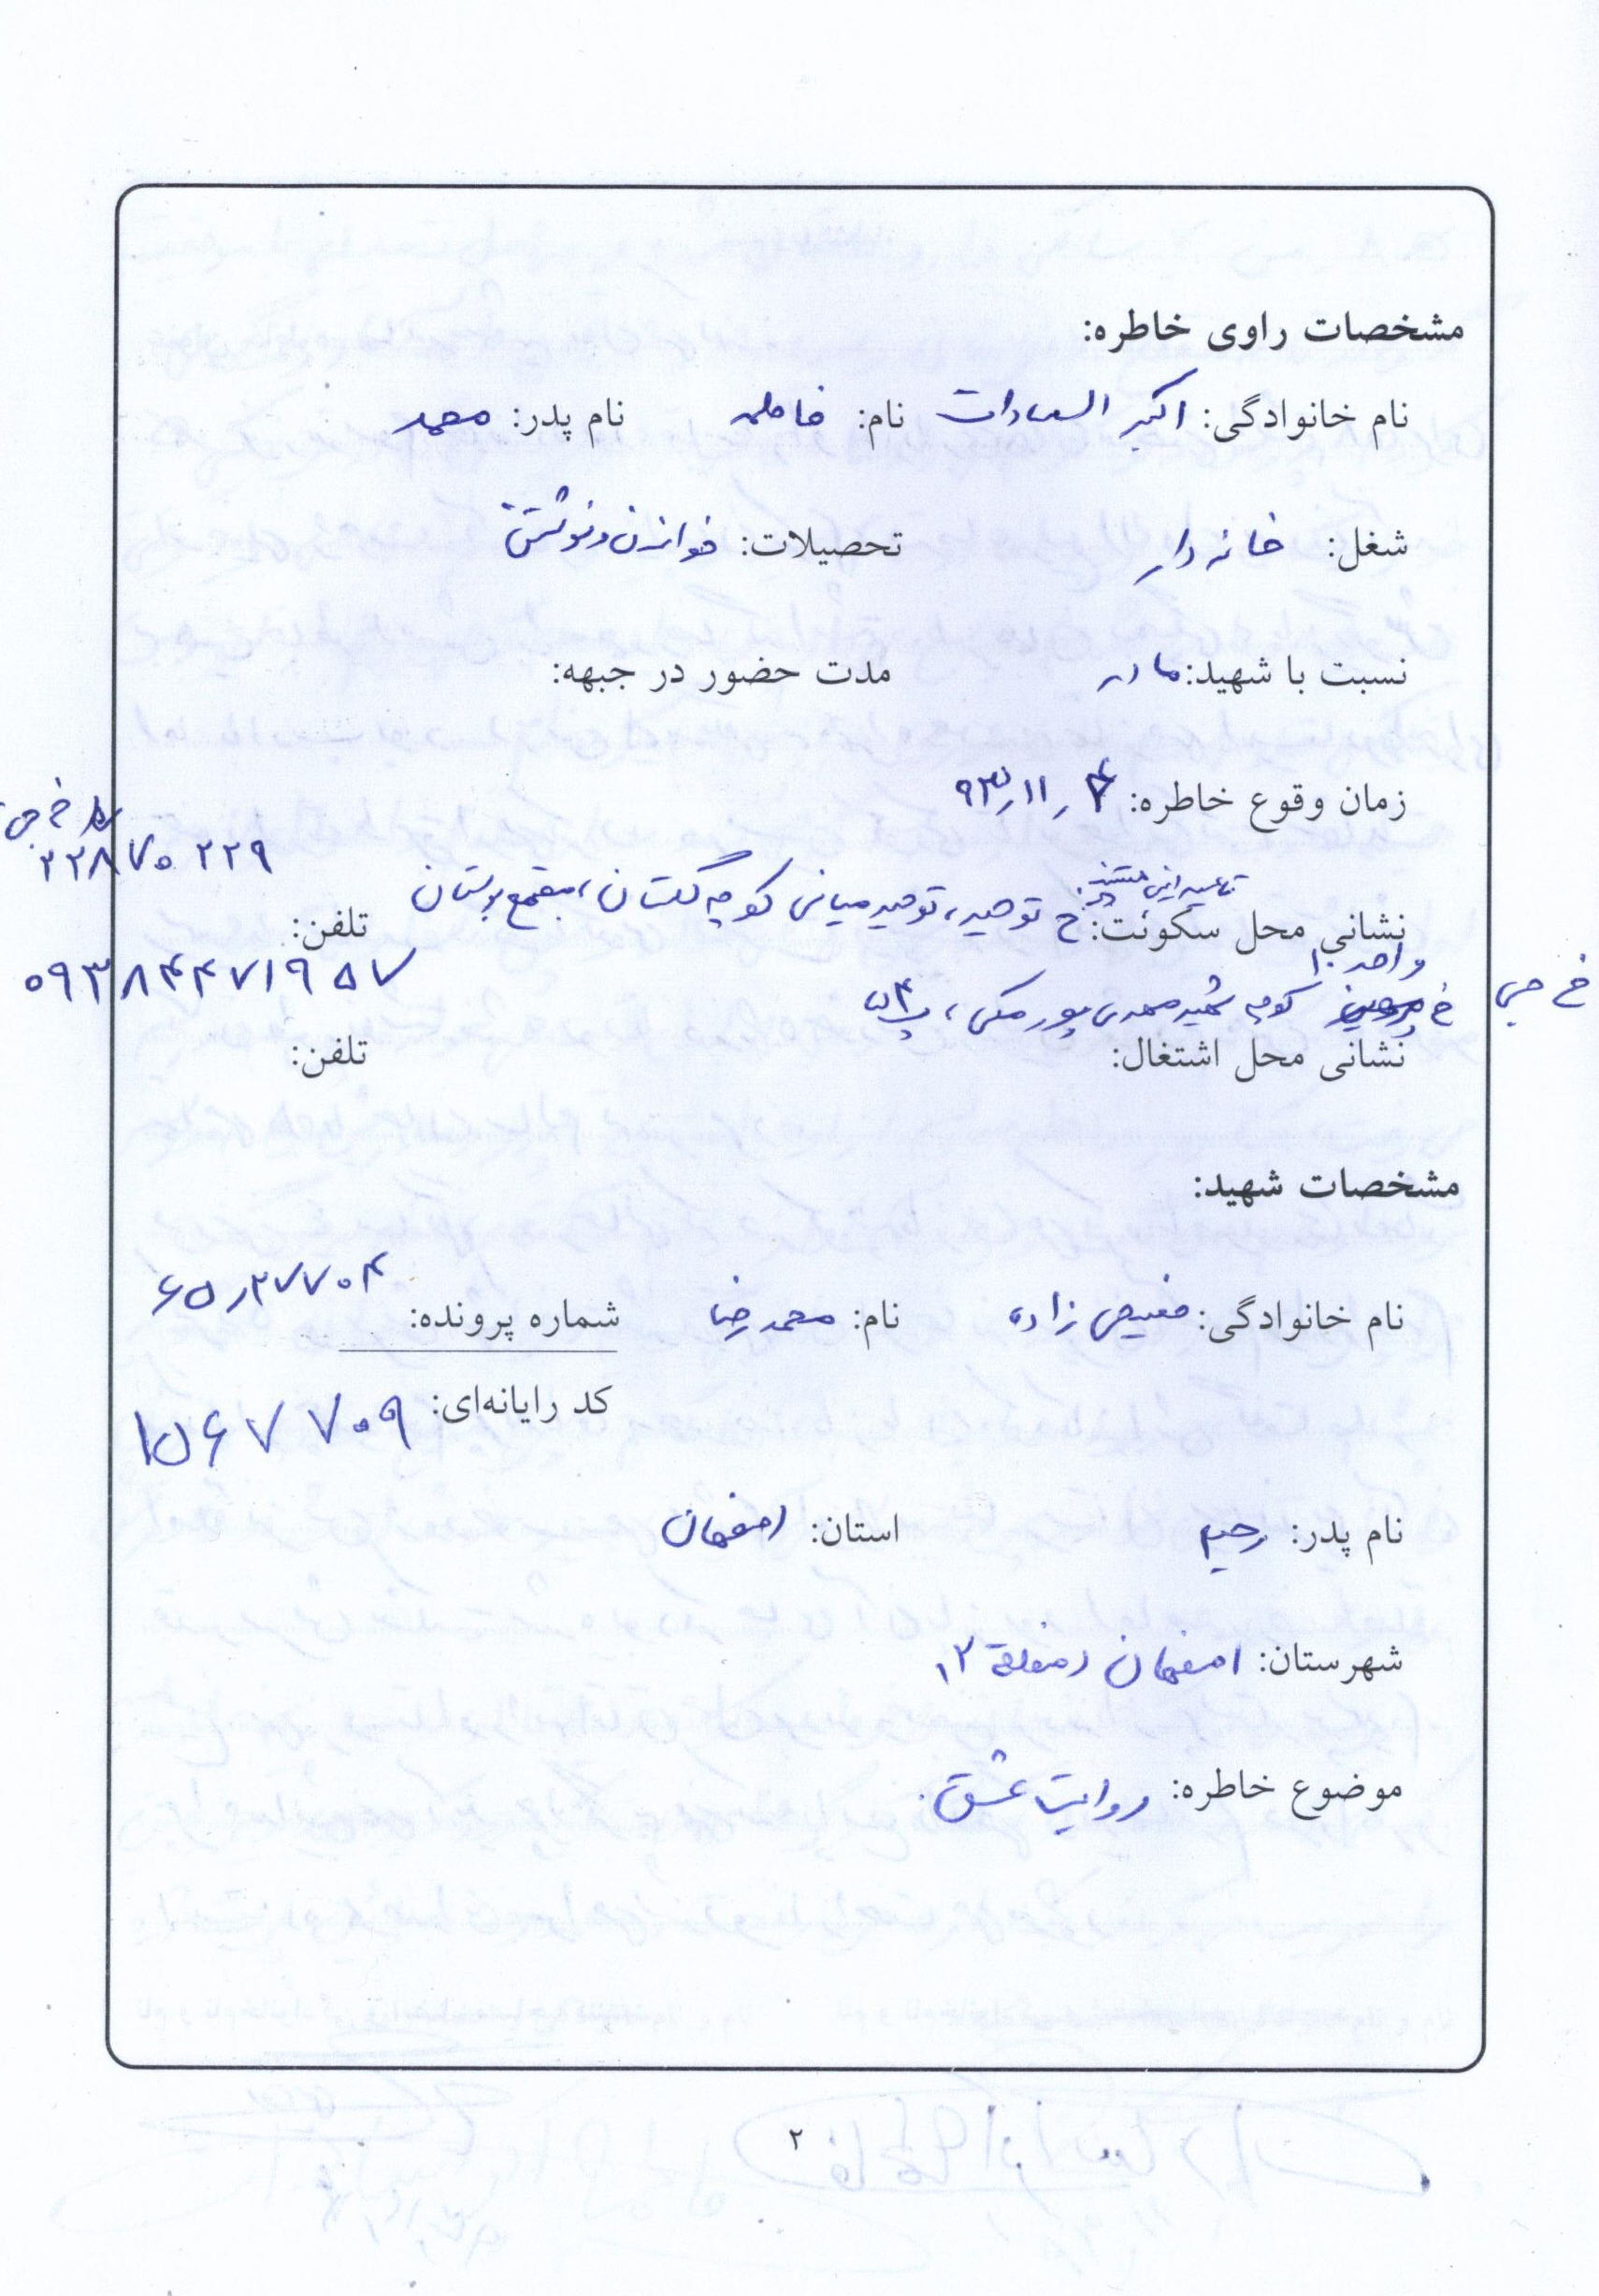 مشخصات راوی خاطره:
نام خانوادگی: اکبر السادات نام: فاطمه نام پدر: محمد
شغل: خانه دار تحصیلات: خواندن و نوشتن
نسبت با شهید: مادر مدت حضور در جبهه:
زمان وقوع خاطره: ۹۳٫۱۱٫۴
خ جی
۲۲۸۷۰۲۲۹
نشانی محل سکونت: خ توحید، توحید میانی کوچه گلستان، مجتمع بوستان تلفن:
واحد ۱۰
خ جی خ کوچه شهید محمدی پور مکی، پ ۵۴ ۰۹۳۸۴۴۷۱۹۵۷
نشانی محل اشتغال: تلفن:
مشخصات شهید:
نام خانوادگی: فصیحی زاده نام: محمدرضا شماره پرونده: ۶۵٫۲۷۷۰۴
کد رایانه‌ای: ۱۵۶۷۷۰۹
نام پدر: رحیم استان: اصفهان
شهرستان: اصفهان منطقه ۲
موضوع خاطره: روایت عشق.
۲